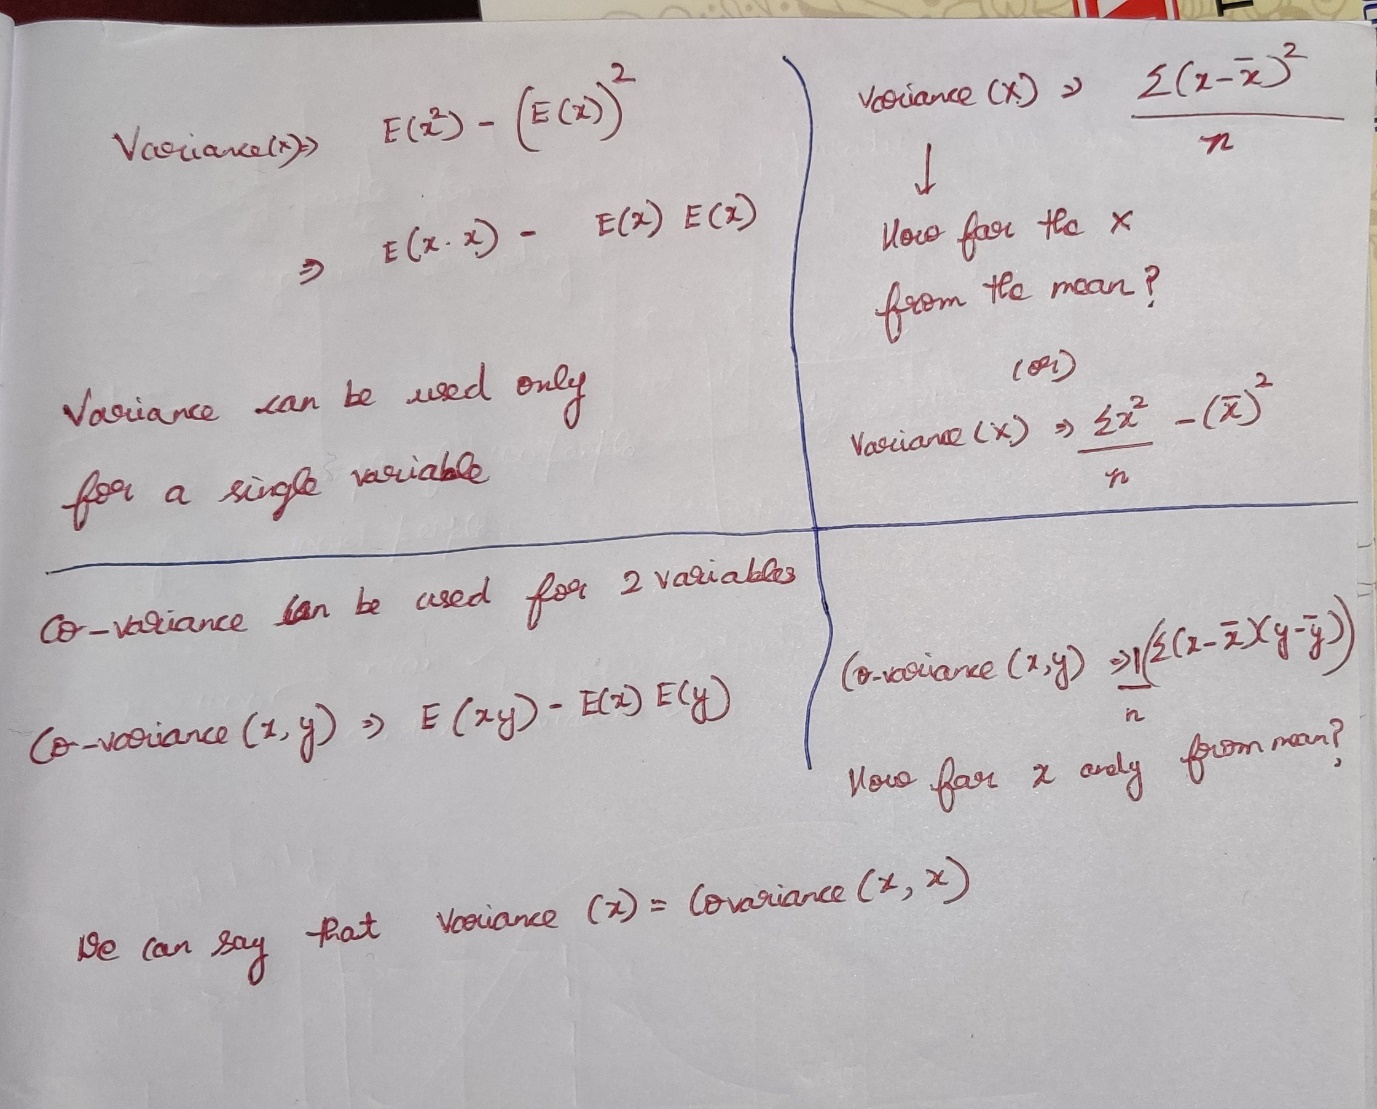 Variance(x) ⇒ E(x²) - (E(x))²
⇒ E(x·x) - E(x) E(x)
Variance can be used only
for a single variable
Variance (x) ⇒ Σ(x-x̄)² / n
↓
How far the x
from the mean?
(or)
Variance (x) ⇒ Σx² / n - (x̄)²
Co-variance can be used for 2 variables
Co-variance (x, y) ⇒ E(xy) - E(x) E(y)
Co-variance (x,y) ⇒ 1/n (Σ(x-x̄)(y-ȳ))
How far x and y from mean?
We can say that Variance (x) = Covariance (x, x)